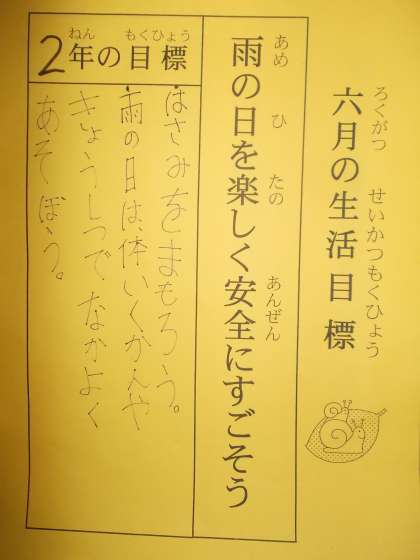 六月の生活目標
ろくがつ せいかつもくひょう
雨の日を楽しく安全にすごそう
あめ ひ たの あんぜん
2年の目標
ねん もくひょう
・はさみをまもろう。
・雨の日は、体いくかんや
きょうしつでなかよく
あそぼう。